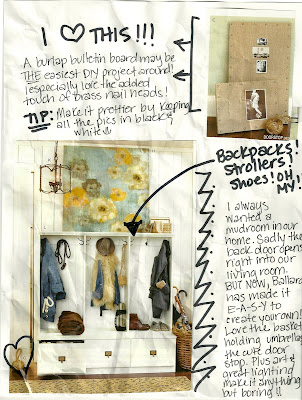 I ♡ THIS!!!
A burlap bulletin board may be
THE easiest DIY project around!
I especially love the added
touch of brass nail heads!
TIP: Make it prettier by keeping
all the pics in black &
white
BACKPACKS!
STROLLERS!
SHOES! OH
MY!
I always
wanted a
mudroom in our
home. Sadly the
back door opens
right into our
living room.
BUT NOW, Ballard
has made it
E-A-S-Y to
create your own!
Love the basket
holding umbrellas,
the cute door
stop. Plus art &
great lighting
make it anything
but boring!!